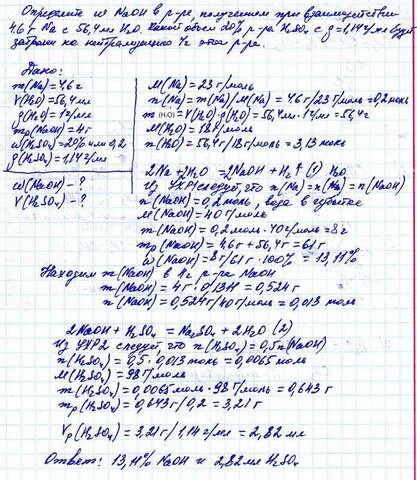 Определите w NaOH в р-ре, полученном при взаимодействии
4,6 г Na с 56,4 мл H₂O. Какой объем 20% р-ра H₂SO₄ с ρ=1,14 г/мл будет
затрачен на нейтрализацию 4г этого р-ра.
Дано:
m(Na)=4,6г
V(H₂O)=56,4мл
ρ(H₂O)=1г/мл
mр(NaOH)=4г
w(H₂SO₄)=20% или 0,2
ρ(H₂SO₄)=1,14г/мл
w(NaOH)-?
V(H₂SO₄)-?
M(Na)=23 г/моль
n(Na)=m(Na)/M(Na)=4,6г/23Г/моль=0,2моль
m(H2O)=V(H₂O)·ρ(H₂O)=56,4мл·1г/мл=56,4г
M(H₂O)=18Г/моль
n(H₂O)=56,4г/18г/моль=3,13 моль
2Na+2H₂O=2NaOH+H₂↑ (1) H₂O
Из УХР1 следует, что n(Na)=n(Na)=n(NaOH)
n(NaOH)=0,2моль, вода в избытке
M(NaOH)=40Г/моль
m(NaOH)=0,2моль·40г/моль=8г
mр(NaOH)=4,6г+56,4г=61г
w(NaOH)=8г/61г·100%=13,11%
Находим m(NaOH) в 4г р-ра NaOH
m(NaOH)=4г·0,1311=0,524г
n(NaOH)=0,524г/40г/моль=0,013 моль
2NaOH+H₂SO₄=Na₂SO₄+2H₂O (2)
Из УХР2 следует, что n(H₂SO₄)=0,5n(NaOH)
n(H₂SO₄)=0,5·0,013моль=0,0065моль
M(H₂SO₄)=98Г/моль
m(H₂SO₄)=0,0065моль·98Г/моль=0,643г
mр(H₂SO₄)=0,643г/0,2=3,21г
Vр(H₂SO₄)=3,21г/1,14г/мл=2,82 мл
Ответ: 13,11% NaOH и 2,82мл H₂SO₄